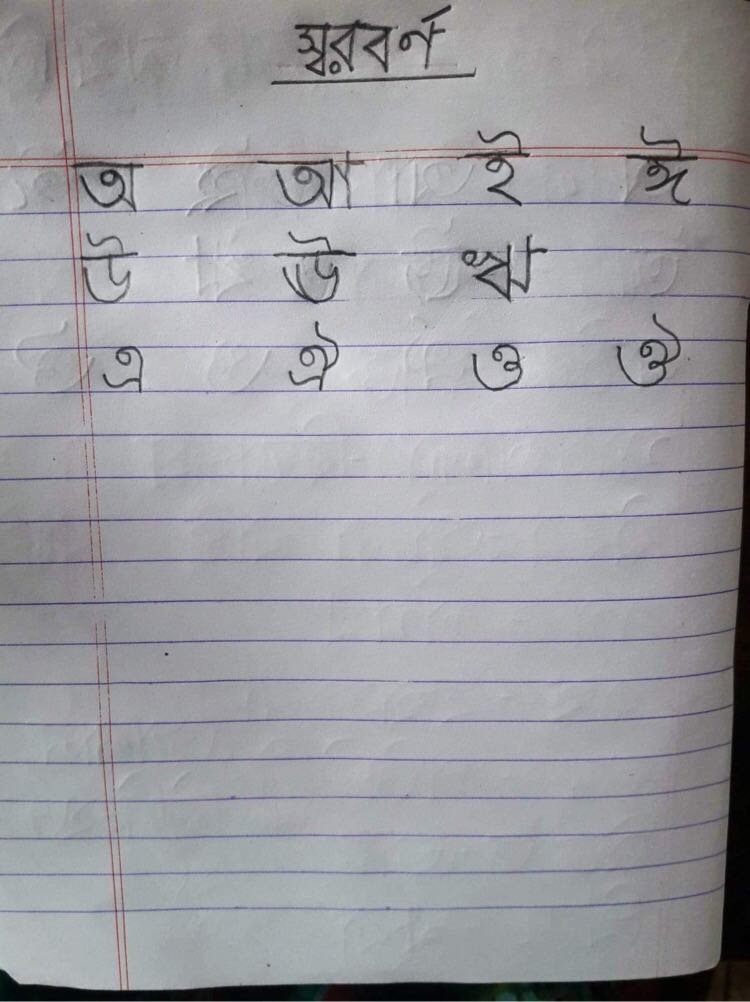 স্বরবর্ণ
অ আ ই ঈ
উ ঊ ঋ
এ ঐ ও ঔ